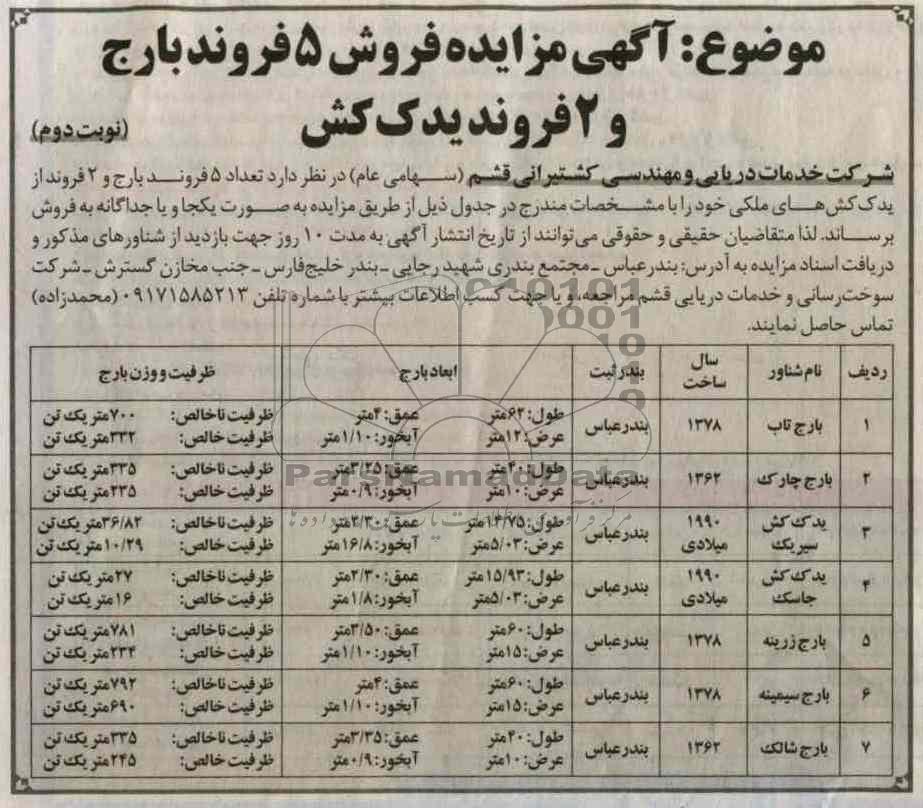 موضوع: آگهی مزایده فروش ۵ فروند بارج
و ۲ فروند یدک کش
(نوبت دوم)
شرکت خدمات دریایی و مهندسی کشتیرانی قشم (سهامی عام) در نظر دارد تعداد ۵ فروند بارج و ۲ فروند از
یدک کش‌های ملکی خود را با مشخصات مندرج در جدول ذیل از طریق مزایده به صورت یکجا و یا جداگانه به فروش
برساند. لذا متقاضیان حقیقی و حقوقی می‌توانند از تاریخ انتشار آگهی به مدت ۱۰ روز جهت بازدید از شناورهای مذکور و
دریافت اسناد مزایده به آدرس: بندرعباس - مجتمع بندری شهید رجایی - بندر خلیج‌فارس - جنب مخازن گسترش - شرکت
سوخت‌رسانی و خدمات دریایی قشم مراجعه، و یا جهت کسب اطلاعات بیشتر با شماره تلفن ۰۹۱۷۱۵۸۵۲۱۳ (محمدزاده)
تماس حاصل نمایند.
ردیف نام شناور سال ساخت بندر ثبت ابعاد بارج ظرفیت و وزن بارج
۱ بارج تاب ۱۳۷۸ بندرعباس طول: ۶۲متر عمق: ۴متر ظرفیت ناخالص: ۷۰۰متر یک تن
عرض: ۱۲متر آبخور: ۱/۱۰متر ظرفیت خالص: ۳۳۲متر یک تن
۲ بارج چارک ۱۳۶۲ بندرعباس طول: ۴۰متر عمق: ۳/۲۵متر ظرفیت ناخالص: ۳۳۵متر یک تن
عرض: ۱۰متر آبخور: ۰/۹متر ظرفیت خالص: ۲۳۵متر یک تن
۳ یدک کش سیریک ۱۹۹۰ میلادی بندرعباس طول: ۱۴/۷۵متر عمق: ۲/۳۰متر ظرفیت ناخالص: ۳۶/۸۲متر یک تن
عرض: ۵/۰۳متر آبخور: ۱۶/۸متر ظرفیت خالص: ۱۰/۲۹متر یک تن
۴ یدک کش جاسک ۱۹۹۰ میلادی بندرعباس طول: ۱۵/۹۳متر عمق: ۲/۳۰متر ظرفیت ناخالص: ۲۷متر یک تن
عرض: ۵/۰۳متر آبخور: ۱/۸متر ظرفیت خالص: ۱۶متر یک تن
۵ بارج زرینه ۱۳۷۸ بندرعباس طول: ۶۰متر عمق: ۳/۵۰متر ظرفیت ناخالص: ۷۸۱متر یک تن
عرض: ۱۵متر آبخور: ۱/۱۰متر ظرفیت خالص: ۲۳۴متر یک تن
۶ بارج سیمینه ۱۳۷۸ بندرعباس طول: ۶۰متر عمق: ۴متر ظرفیت ناخالص: ۷۹۲متر یک تن
عرض: ۱۵متر آبخور: ۱/۱۰متر ظرفیت خالص: ۶۹۰متر یک تن
۷ بارج شالک ۱۳۶۲ بندرعباس طول: ۴۰متر عمق: ۳/۳۵متر ظرفیت ناخالص: ۳۳۵متر یک تن
عرض: ۱۰متر آبخور: ۰/۹متر ظرفیت خالص: ۲۴۵متر یک تن
ParsNamadData